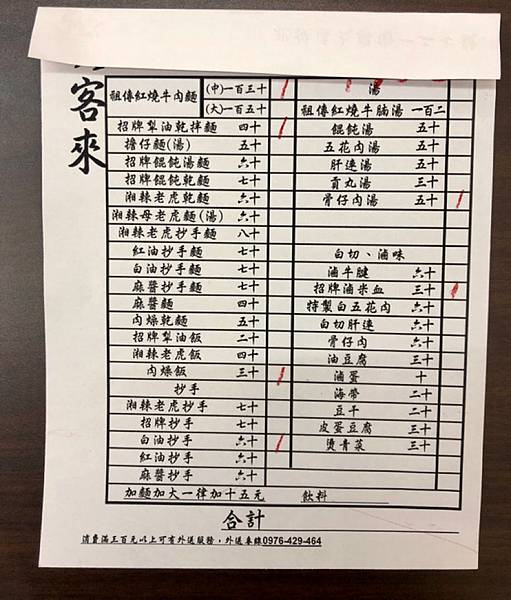 客來
祖傳紅燒牛肉麵 (中)一百三十
(大)一百五十
招牌犁油乾拌麵 四十
擔仔麵(湯) 五十
招牌餛飩湯麵 六十
招牌餛飩乾麵 七十
湘辣老虎乾麵 六十
湘辣母老虎麵(湯) 六十
湘辣老虎抄手麵 八十
紅油抄手麵 七十
白油抄手麵 七十
麻醬抄手麵 七十
麻醬麵 四十
肉燥乾麵 五十
招牌犁油飯 二十
湘辣老虎飯 四十
肉燥飯 三十
抄手
湘辣老虎抄手 七十
招牌抄手 七十
白油抄手 六十
紅油抄手 六十
麻醬抄手 六十
湯
祖傳紅燒牛腩湯 一百二
餛飩湯 五十
五花肉湯 五十
肝連湯 五十
貢丸湯 三十
骨仔肉湯 五十
白切、滷味
滷牛腱 六十
招牌滷米血 三十
特製白五花肉 六十
白切肝連 六十
骨仔肉 六十
油豆腐 三十
滷蛋 十
海帶 二十
豆干 二十
皮蛋豆腐 三十
燙青菜 三十
加麵加大一律加十五元 飲料
合計
消費滿三百元以上可有外送服務，外送專線0976-429-464